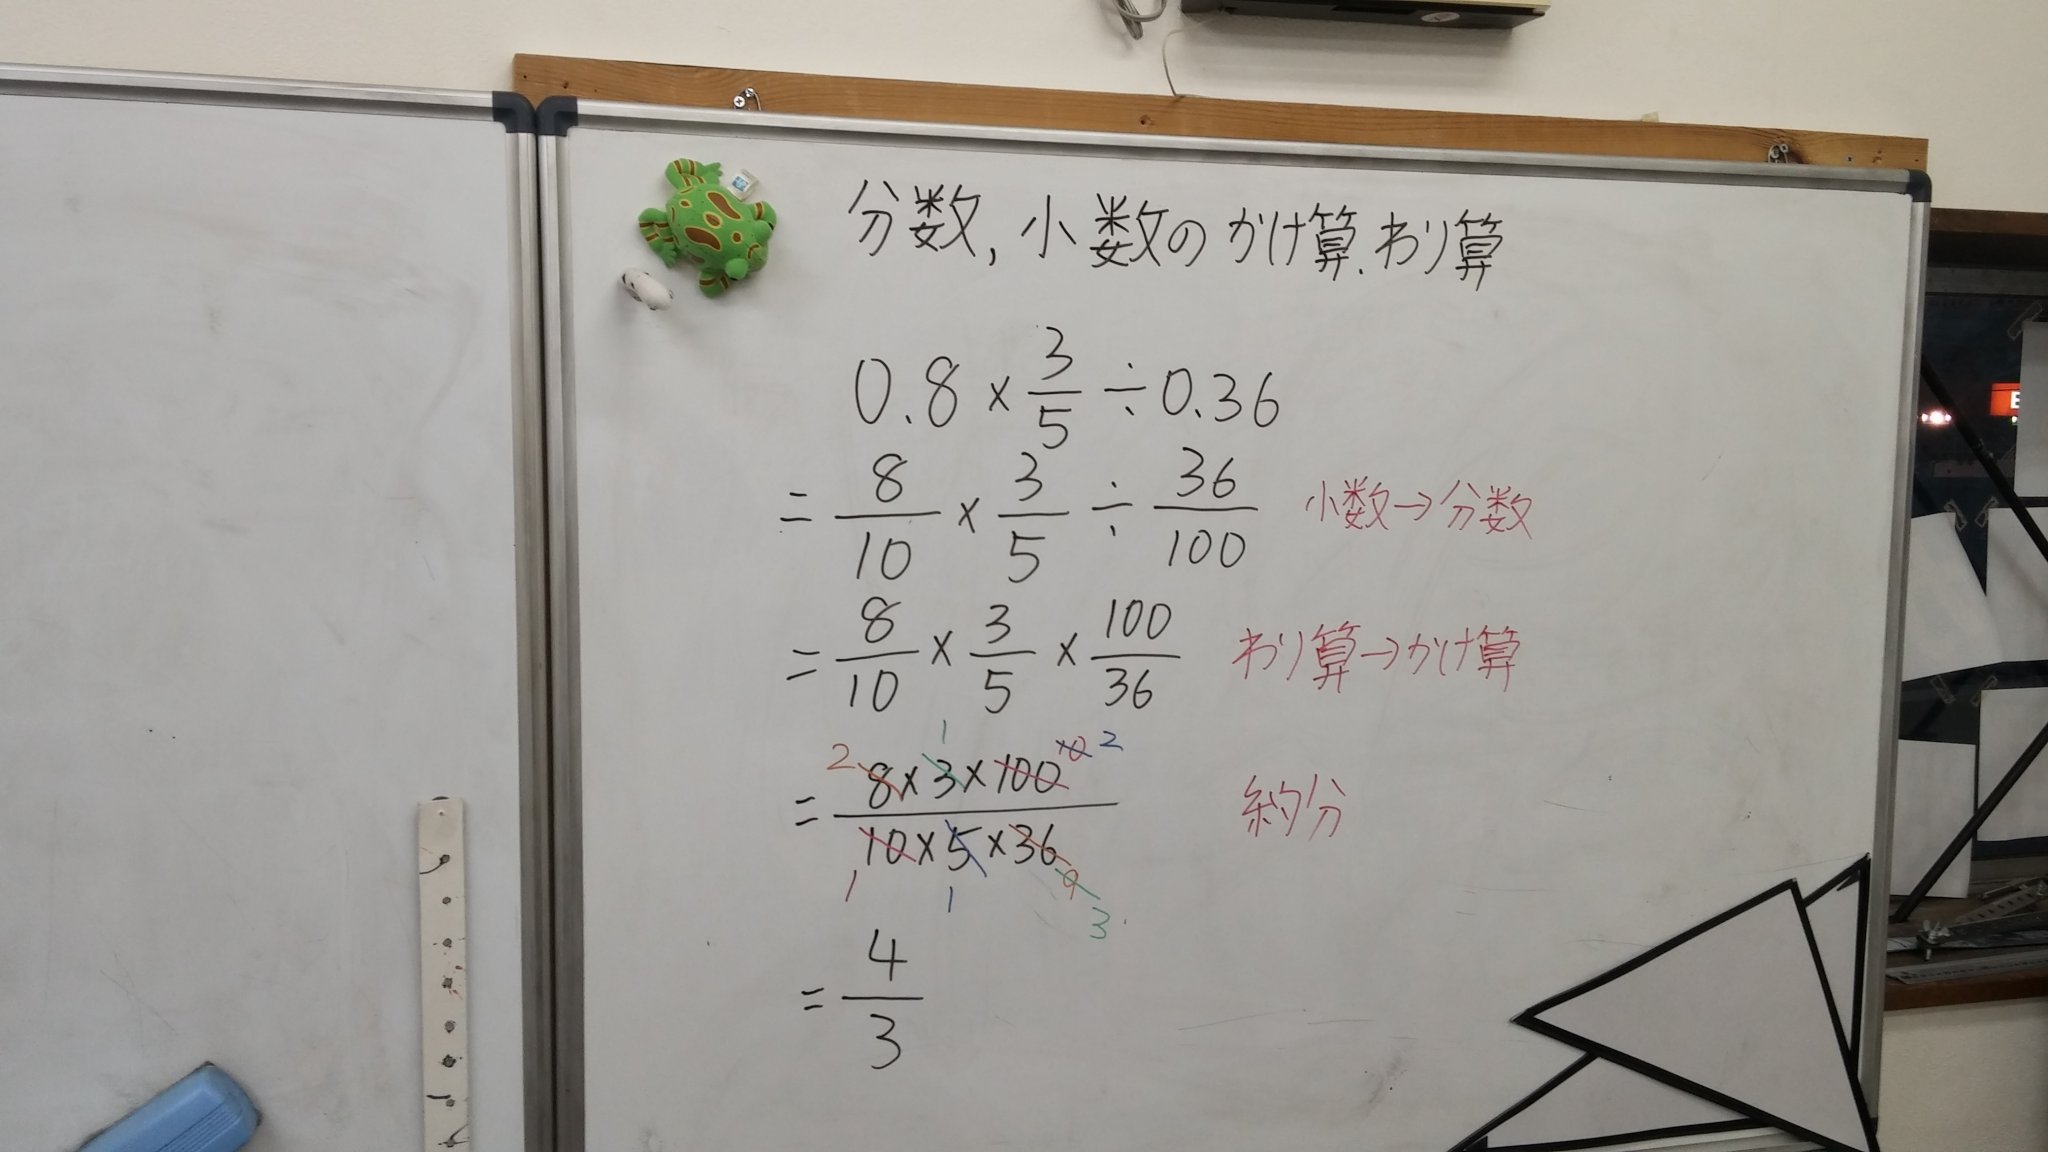 分数,小数のかけ算、わり算
0.8 × 3/5 ÷ 0.36
= 8/10 × 3/5 ÷ 36/100 小数→分数
= 8/10 × 3/5 × 100/36 わり算→かけ算
2 1 10 2
= 8×3×100/10×5×36 約分
1 1 9 3
= 4/3